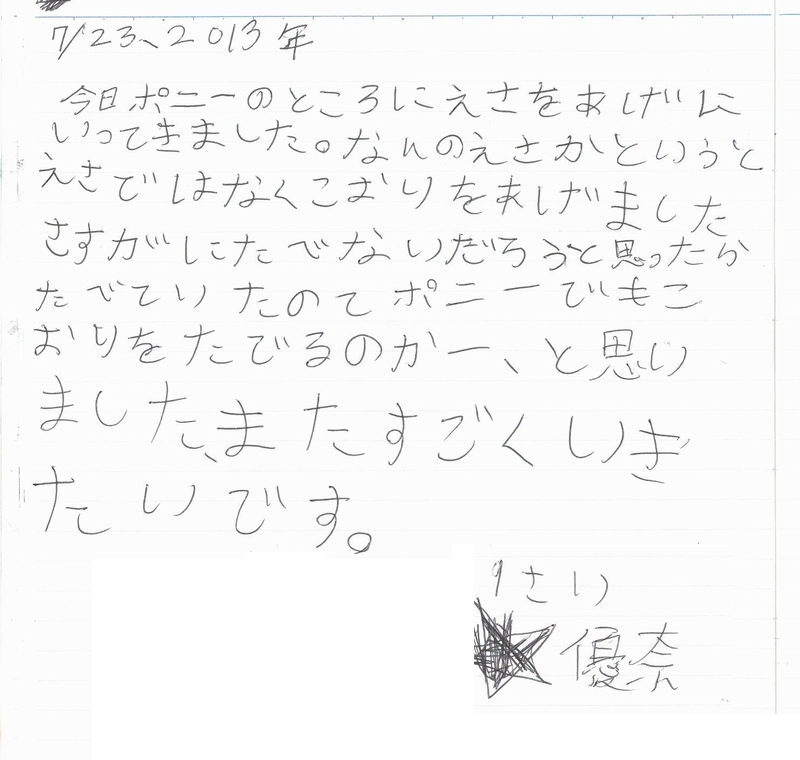 7/23、2013年
今日ポニーのところにえさをあげに
いってきました。なんのえさかというと
えさではなくこおりをあげました
さすがにたべないだろうと思ったら
たべていたのでポニーでもこ
おりをたべるのかー、と思い
ました、またすごくいき
たいです。
9さい
優奈